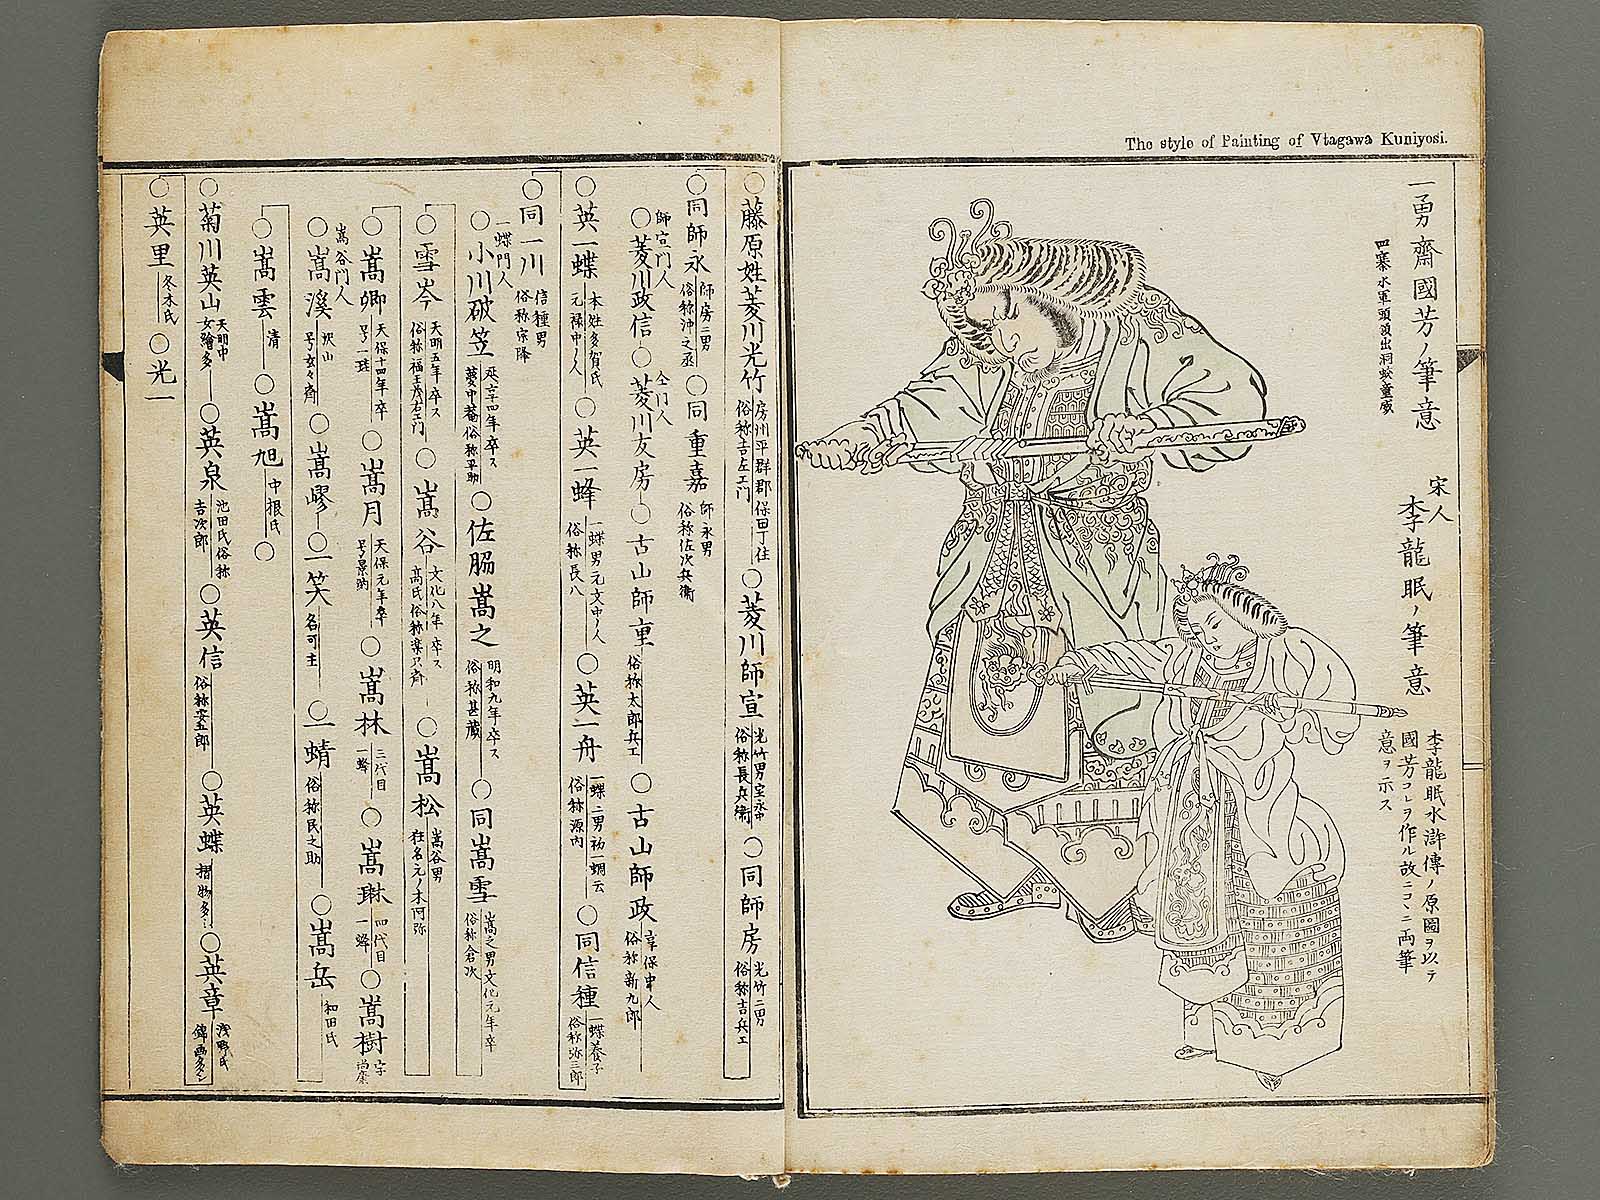 The style of Painting of Vtagawa Kuniyosi.
一勇齋國芳ノ筆意
四寨水軍頭領出洞蛟童威
宋人
李龍眠ノ筆意
李龍眠水滸傳ノ原圖ヲ以テ
國芳コレヲ作ル故ニコヽニ両筆
意ヲ示ス
○藤原姓菱川光竹
房州平群郡保田丁住
俗称吉左エ門
○菱川師宣
光竹男宝永中
俗称長兵衛
○同師房
光竹二男
俗称吉兵エ
○同師永
師房二男
俗称沖之丞
○同重嘉
師永男
俗称佐次兵衛
師宣門人
○菱川政信
仝門人
○菱川友房
○古山師重
俗称太郎兵エ
○古山師政
享保中人
俗称新九郎
○英一蝶
本姓多賀氏
元禄中ノ人
○英一蜂
一蝶男元文中ノ人
俗称長八
○英一舟
一蝶二男初一蜩云
俗称源内
○同信種
一蝶養子
俗称弥三郎
○同一川
信種男
俗称宗隆
一蝶門人
○小川破笠
延享四年卒ス
夢中菴俗称平助
○佐脇嵩之
明和九年卒ス
俗称甚蔵
○同嵩雪
嵩之男文化元年卒
俗称倉次
○雪岑
天明五年卒ス
俗称福王茂右エ門
○嵩谷
文化八年卒ス
高氏俗称楽只斉
○嵩松
嵩谷男
在名元ノ木阿弥
○嵩卿
天保十四年卒
号一珪
○嵩月
天保元年卒
号景訥
○嵩林
三代目
一蜂
○嵩琳
四代目
一蜂
○嵩樹
字
嵩谷門人
○嵩溪
号玄々斉
○嵩嵺
○一笑
名可主
○一蜻
俗称民之助
○嵩岳
和田氏
○嵩雲
清
○嵩旭
中根氏
○
○菊川英山
天明中
女繪多
○英泉
池田氏俗称
吉次郎
○英信
俗称安五郎
○英蝶
摺物多シ
○英章
浅野氏
錦画多シ
○英里
冬木氏
○光一